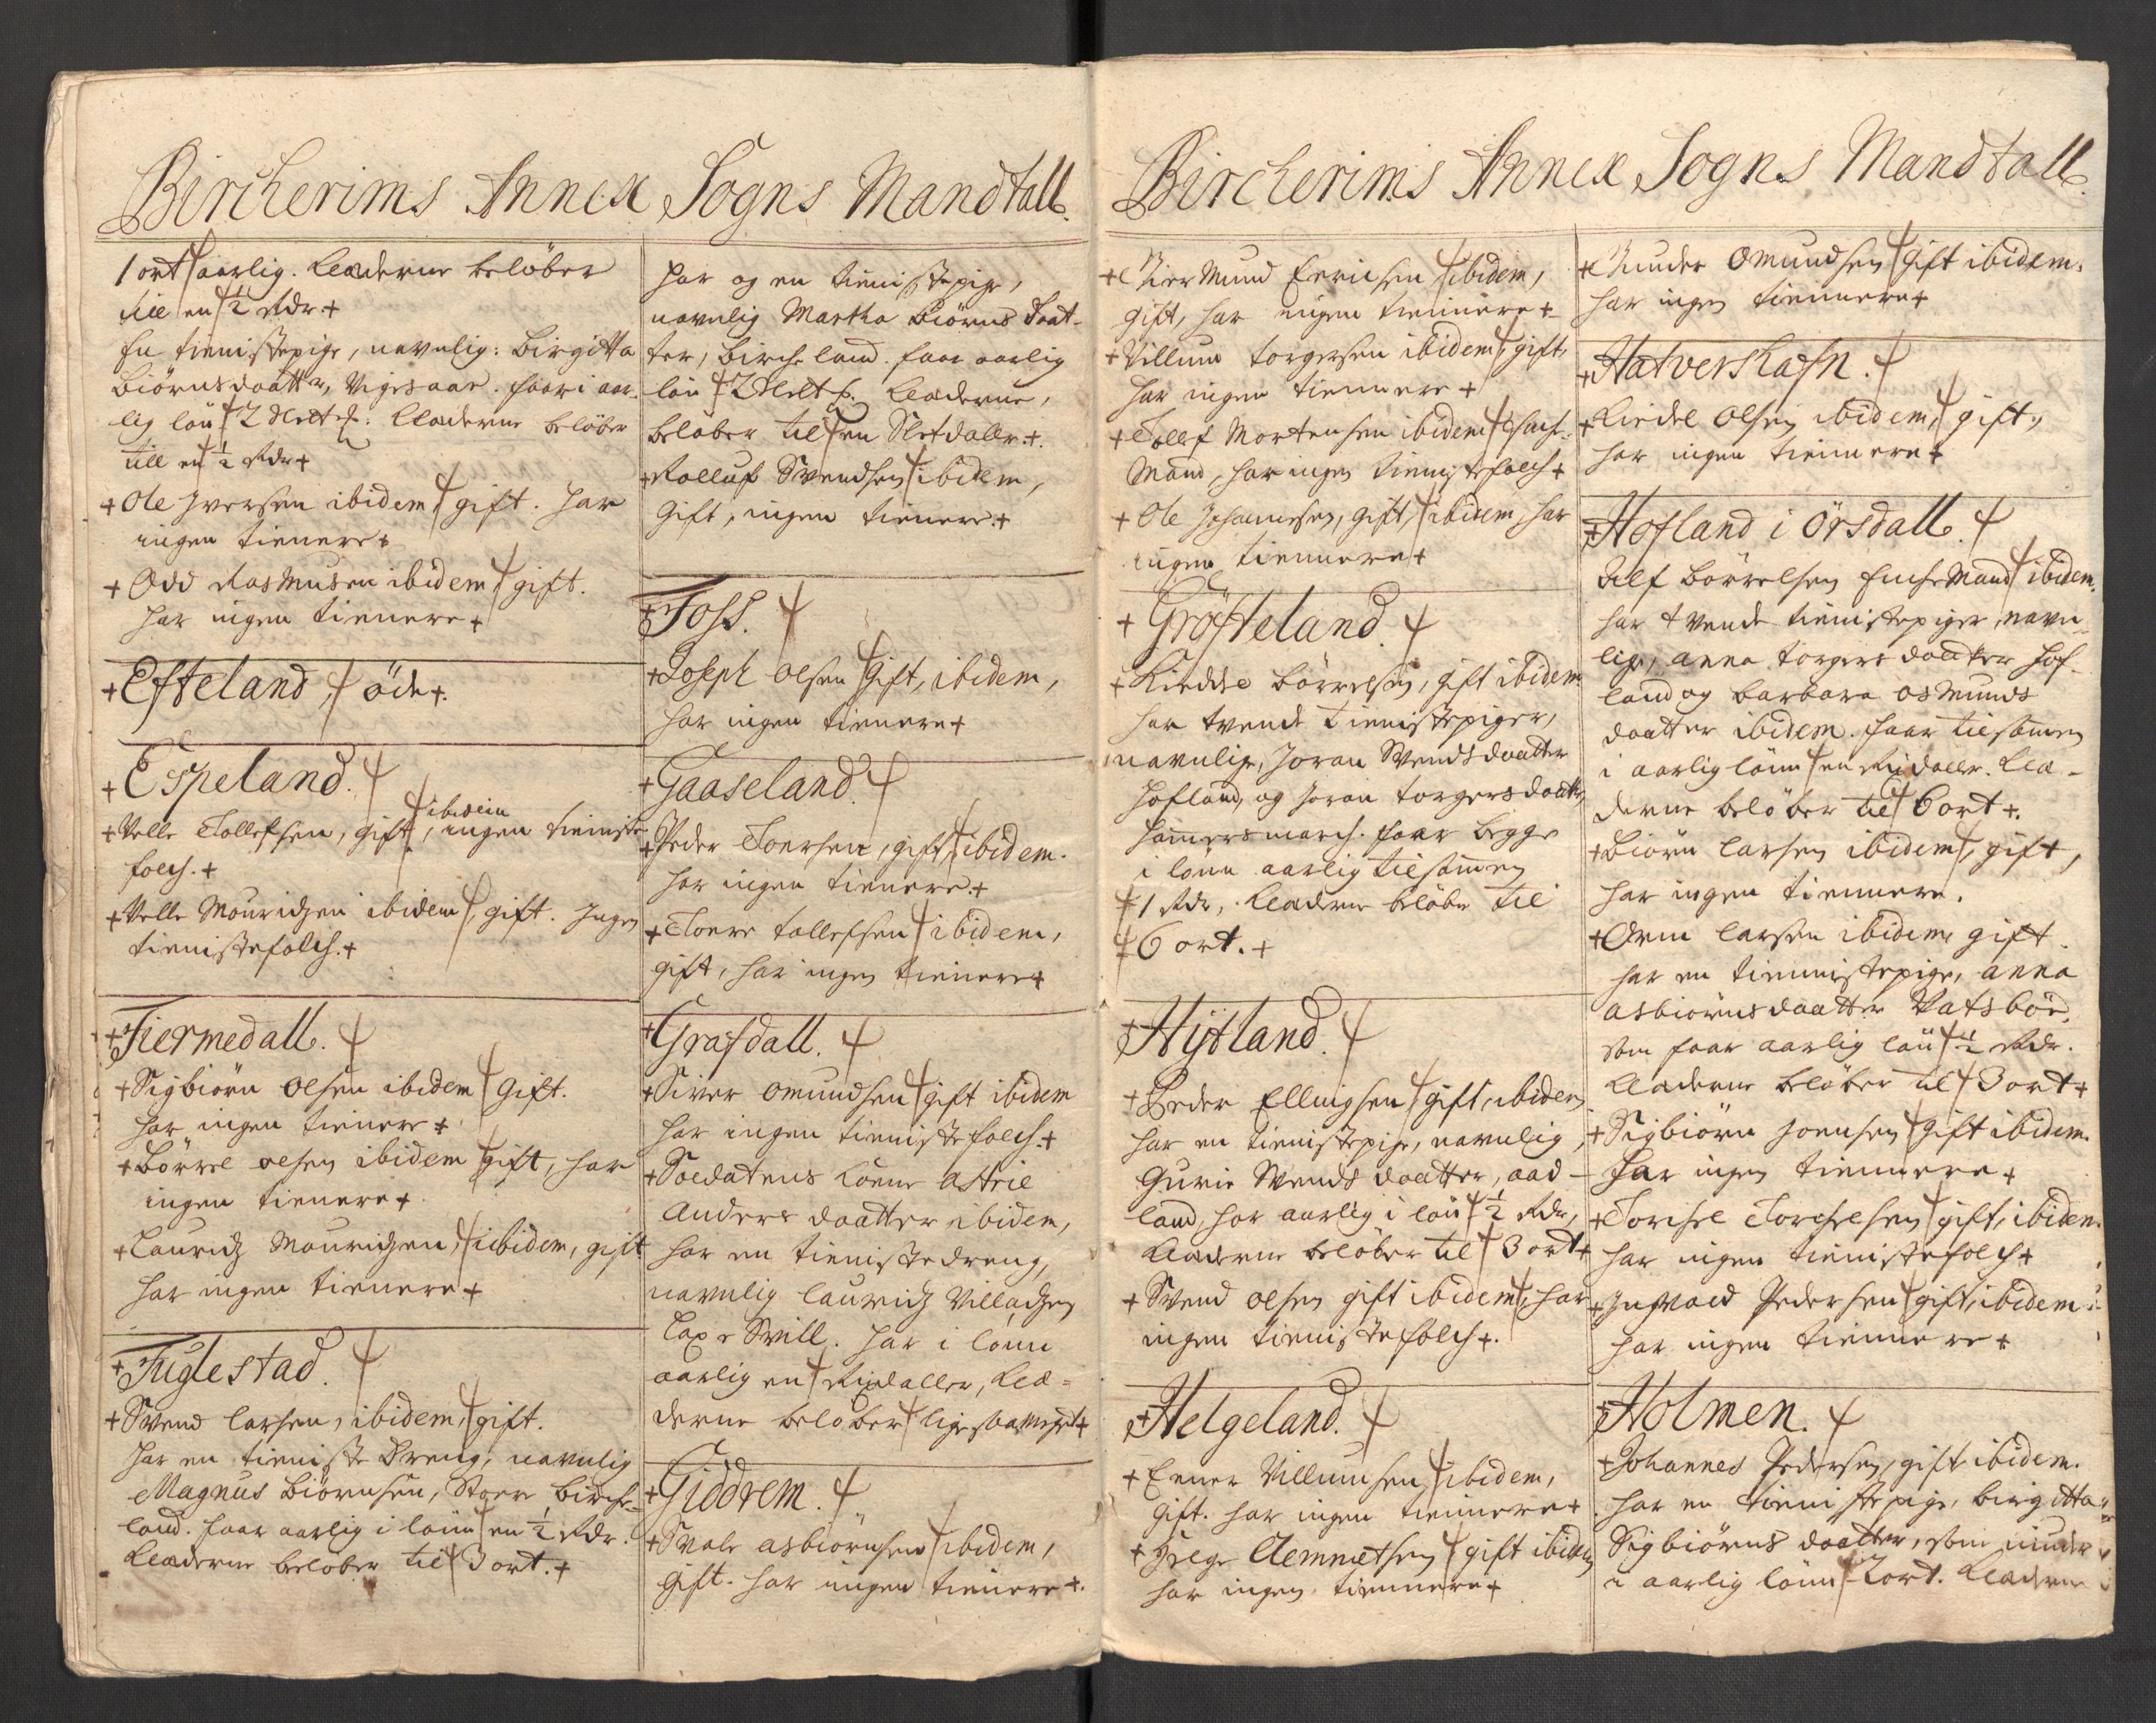 Bircherims Annex Sogns Mandtall.
1 ort aarlig. Klæderne beløber
till en ½ Rdr +
En tienistepige, navnlig: Birgitta
Biørnsdaatter, Vigesaae. faar i aar-
lig løn 2 Slet d: Klæderne beløber
till en ½ Rdr +
+ Ole Iversen ibidem, gift. har
ingen tienere +
+ Odd Rasmusen ibidem, gift.
har ingen tienere +
+ Efteland, øde +.
+ Espeland.
+ Velle Tollefsen, gift, ibidem, ingen tieniste
folch. +
+ Velle Mouridzen ibidem, gift. Ingen
tienistefolch. +
+ Fiermedall.
+ Sigbiørn Olsen ibidem Gift.
har ingen tienere +
+ Børrel olsen ibidem gift, har
ingen tienere +
+ Lauridz Mouridzen, ibidem, gift
har ingen tienere +
+ Fuglestad.
+ Svend larsen, ibidem, gift.
har en tieniste Dreng, navnlig
Magnus Biørnsen, Store Birche-
land. faar aarlig i løn en ½ Rdr.
Klæderne beløber til 3 ort. +
har og en tienistepige,
navnlig Martha Biørns daat-
ter, Bircheland. faar aarlig
løn 2 Slet d. Klæderne,
beløber til en Sletdaller +.
+ Rolluf Svendsen ibidem,
Gift, ingen tienere. +
+ Foss.
+ Joseph olsen Gift, ibidem,
har ingen tienere +
+ Gaaseland.
+ Peder Toersen, gift, ibidem.
har ingen tienere. +
+ Toere tollefsen ibidem,
gift, har ingen tienere +
+ Grafdall.
+ Siver omundsen gift ibidem
har ingen tienistefolch. +
+ Soldatens Kone Astrie
Anders daatter ibidem,
har en tienistedreng,
navnlig lauridz Villadzen
har i lønn
aarlig en Rixdaller, Klæ-
derne beløber ligesaameget +
+ Giddrem.
+ Svale asbiørnsen ibidem,
Gift. har ingen tienere +.
Bircherims Annex Sogns Mandtall.
+ Giermund Erichsen ibidem,
gift, har ingen tiennere +
+ Villum torgersen ibidem, gift,
har ingen tiennere +
+ Tollef Mortensen ibidem
Mand, har ingen tienistefolch +
+ Ole Johannesen, gift, ibidem, har
ingen tiennere +
+ Grøfteland.
+ Kieddel Børrelsen, gift ibidem
har tvende tienistepiger,
navnlige, Joran Svendsdaatter
Hofland, og Joran torgersdaatter
Hammersmarch. faar begge
i lønn aarlig tilsammen
1 Rdr, Klæderne beløber til
6 ort. +
+ Hÿtland.
+ Peder Ellingsen gift, ibidem
har en tienistepige, navnlig,
Gurie Svends daatter, aad-
land, har aarlig i løn ½ Rdr,
Klæderne beløber til 3 ort +
+ Svend olsen gift ibidem, har
ingen tienistefolch +.
+ Helgeland.
+ Enner Villumsen ibidem,
Gift. har ingen tiennere +
+ Helge Clemmetsen gift ibidem
har ingen tiennere +
+ Gunder Omundsen Gift ibidem.
har ingen tiennere +
+ Hatvershafn.
+ Kiedel Olsen ibidem, gift,
har ingen tiennere +
+ Hofland i Ørsdall.
Alf Børrelsen Enchemand ibidem.
har tvende tienistepiger, navn-
lige, Anna torgers daatter Hof-
land og Barbara Osmunds
daatter ibidem. faar tilsammen
i aarlig lønn en Rixdaller. Klæ-
derne beløber til 6 ort +.
+ Biørn larsen ibidem, gift,
har ingen tiennere.
+ Orm larsen ibidem, gift.
har en tiennistepige, anna
asbiørnsdaatter Vatsbøe,
som faar aarlig løn ½ Rdr.
Klæderne beløber til 3 ort +
+ Sigbiørn Joensen Gift ibidem.
har ingen tiennere +
+ Torchel Torchelsen gift, ibidem.
har ingen tienistefolch +
+ Ingvald Pedersen gift, ibidem:
har ingen tiennere +
+ Holmen.
+ Johannes Pedersen, gift ibidem.
har en tienistepige, Birgitta
Sigbiørns daatter, som nyder
i aarlig lønn 2 ort. Klæderne